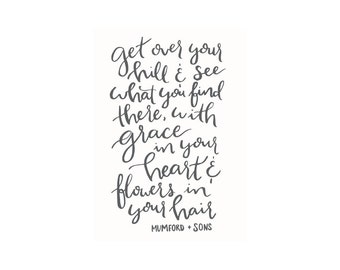 get over your
hill & see
what you find
there, with
grace
in your
heart &
flowers in
your hair
MUMFORD + SONS